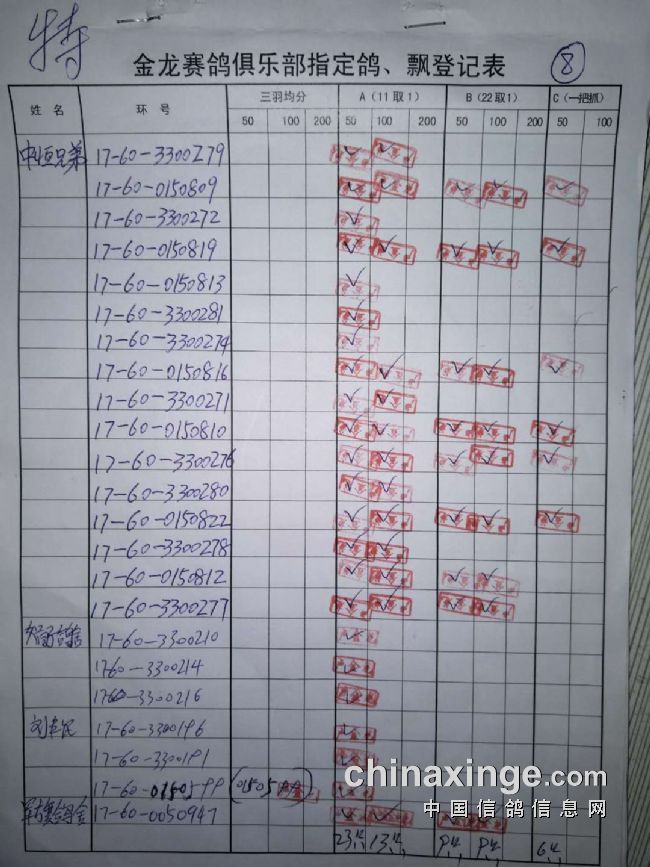 特
金龙赛鸽俱乐部指定鸽、飘登记表 ⑧
姓名 环号 三羽均分 A(11取1) B(22取1) C(一把抓)
50 100 200 50 100 200 50 100 200 50 100
中恒兄弟 17-60-3300279
17-60-0150809
17-60-3300272
17-60-0150819
17-60-0150813
17-60-3300281
17-60-3300274
17-60-0150816
17-60-3300271
17-60-0150810
17-60-3300276
17-60-3300280
17-60-0150822
17-60-3300278
17-60-0150812
17-60-3300277
17-60-3300210
17-60-3300214
17-60-3300216
17-60-3300196
17-60-3300191
17-60-
17-60-0050947
chinaxinge.com
中国信鸽信息网
23 13 6